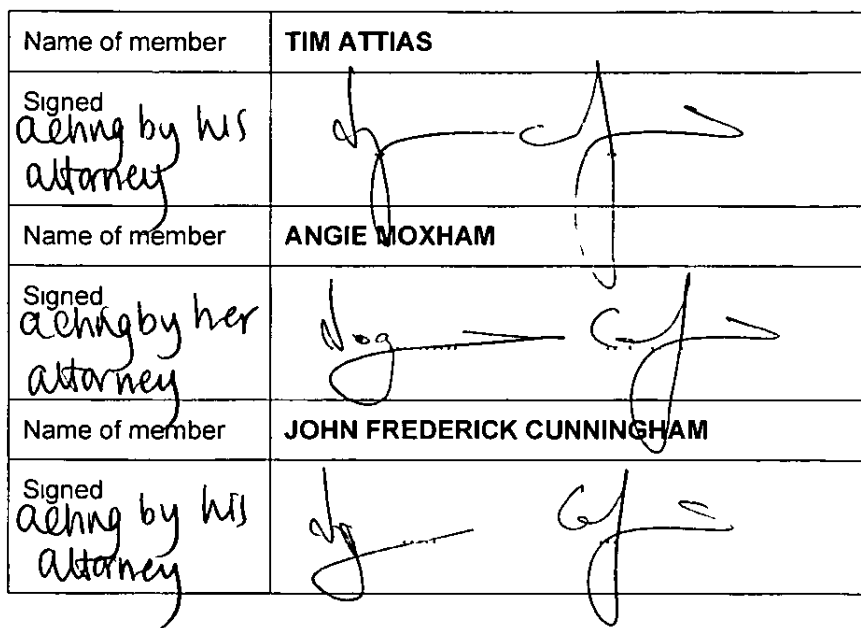 Name of member TIM ATTIAS
Signed
acting by his
attorney
Name of member ANGIE MOXHAM
Signed
acting by her
attorney
Name of member JOHN FREDERICK CUNNINGHAM
Signed
acting by his
attorney